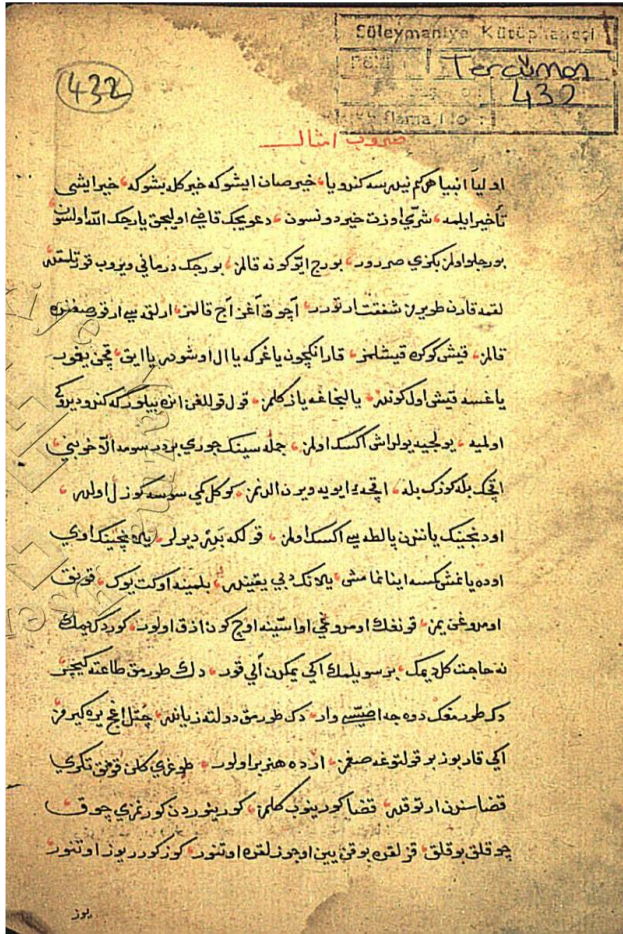 Süleymaniye Kütüphanesi
Tercüman
432
432
ضروب امثال
اوليا انبيا هركم نيلرسه كندويا خير صان ايشوكه خير كله بشوكه خير ايشى
تأخير ايلمه شرى اوزت خير دونسون دعويجك قاضى اوليجق ياردجك الله اولسون
بورجلو اولن بكزى صرر بورج اتوكونه قالمز بورجك درمانى ويروب قورتلمقدر
لقمه قارن طويورمز شفقت ارتورر آچوق آغز آچ قالمز
قالمز قيش كوكن قيشلمز قارانكچون ياغركه يا ال اوشودر يا اياق قچن يغمور
ياغسه قيش اول كوندر يالنجاغه ياز كلمز قول قوللغن ايده بيلورسه كندو ديرلكى
اولميه يولجيه يولداش اكسك اولمز جمله سينك جورى بردر سومه الا خوبنى
اقچك بله كوزك بله اقچه ايو يه ويرن الدنمز كوكل كمى سوسه كوزل اولدر
اودنجينك ياننده پالطه سى اكسك اولمز قولكه بر ديرلر يلانچينك اوى
اوده يانمش كمسه اينانمامش يلانك ديبى يقيندر بلمينه اوكت يوك قونق
اومدوغن يمز قونغك اومدوغى اواسينه اوچ كون ازق اولور كوردك ديمك
نه حاجت كل ديمك بر سويلمك اكى يمكدن اليقور دك طورمق طاعته كچر
دك طورمغك دوه جه اصيسى وار دك طورمق دولته زياندر چتل اغج يره كيرمز
اكى قارپوز بر قولتوغه صغمز ارده هنر بر اولور طوغرى كلن قومق تكرى
قضاسندن ارتوقدر قضا كورينوب كلمز كورينوردن كورنمزى چوق
چوقلق بوقلق قزلقده بوقن يين اوجوزلقده اوتنور كوز كورر يوز اوتنور
يوز